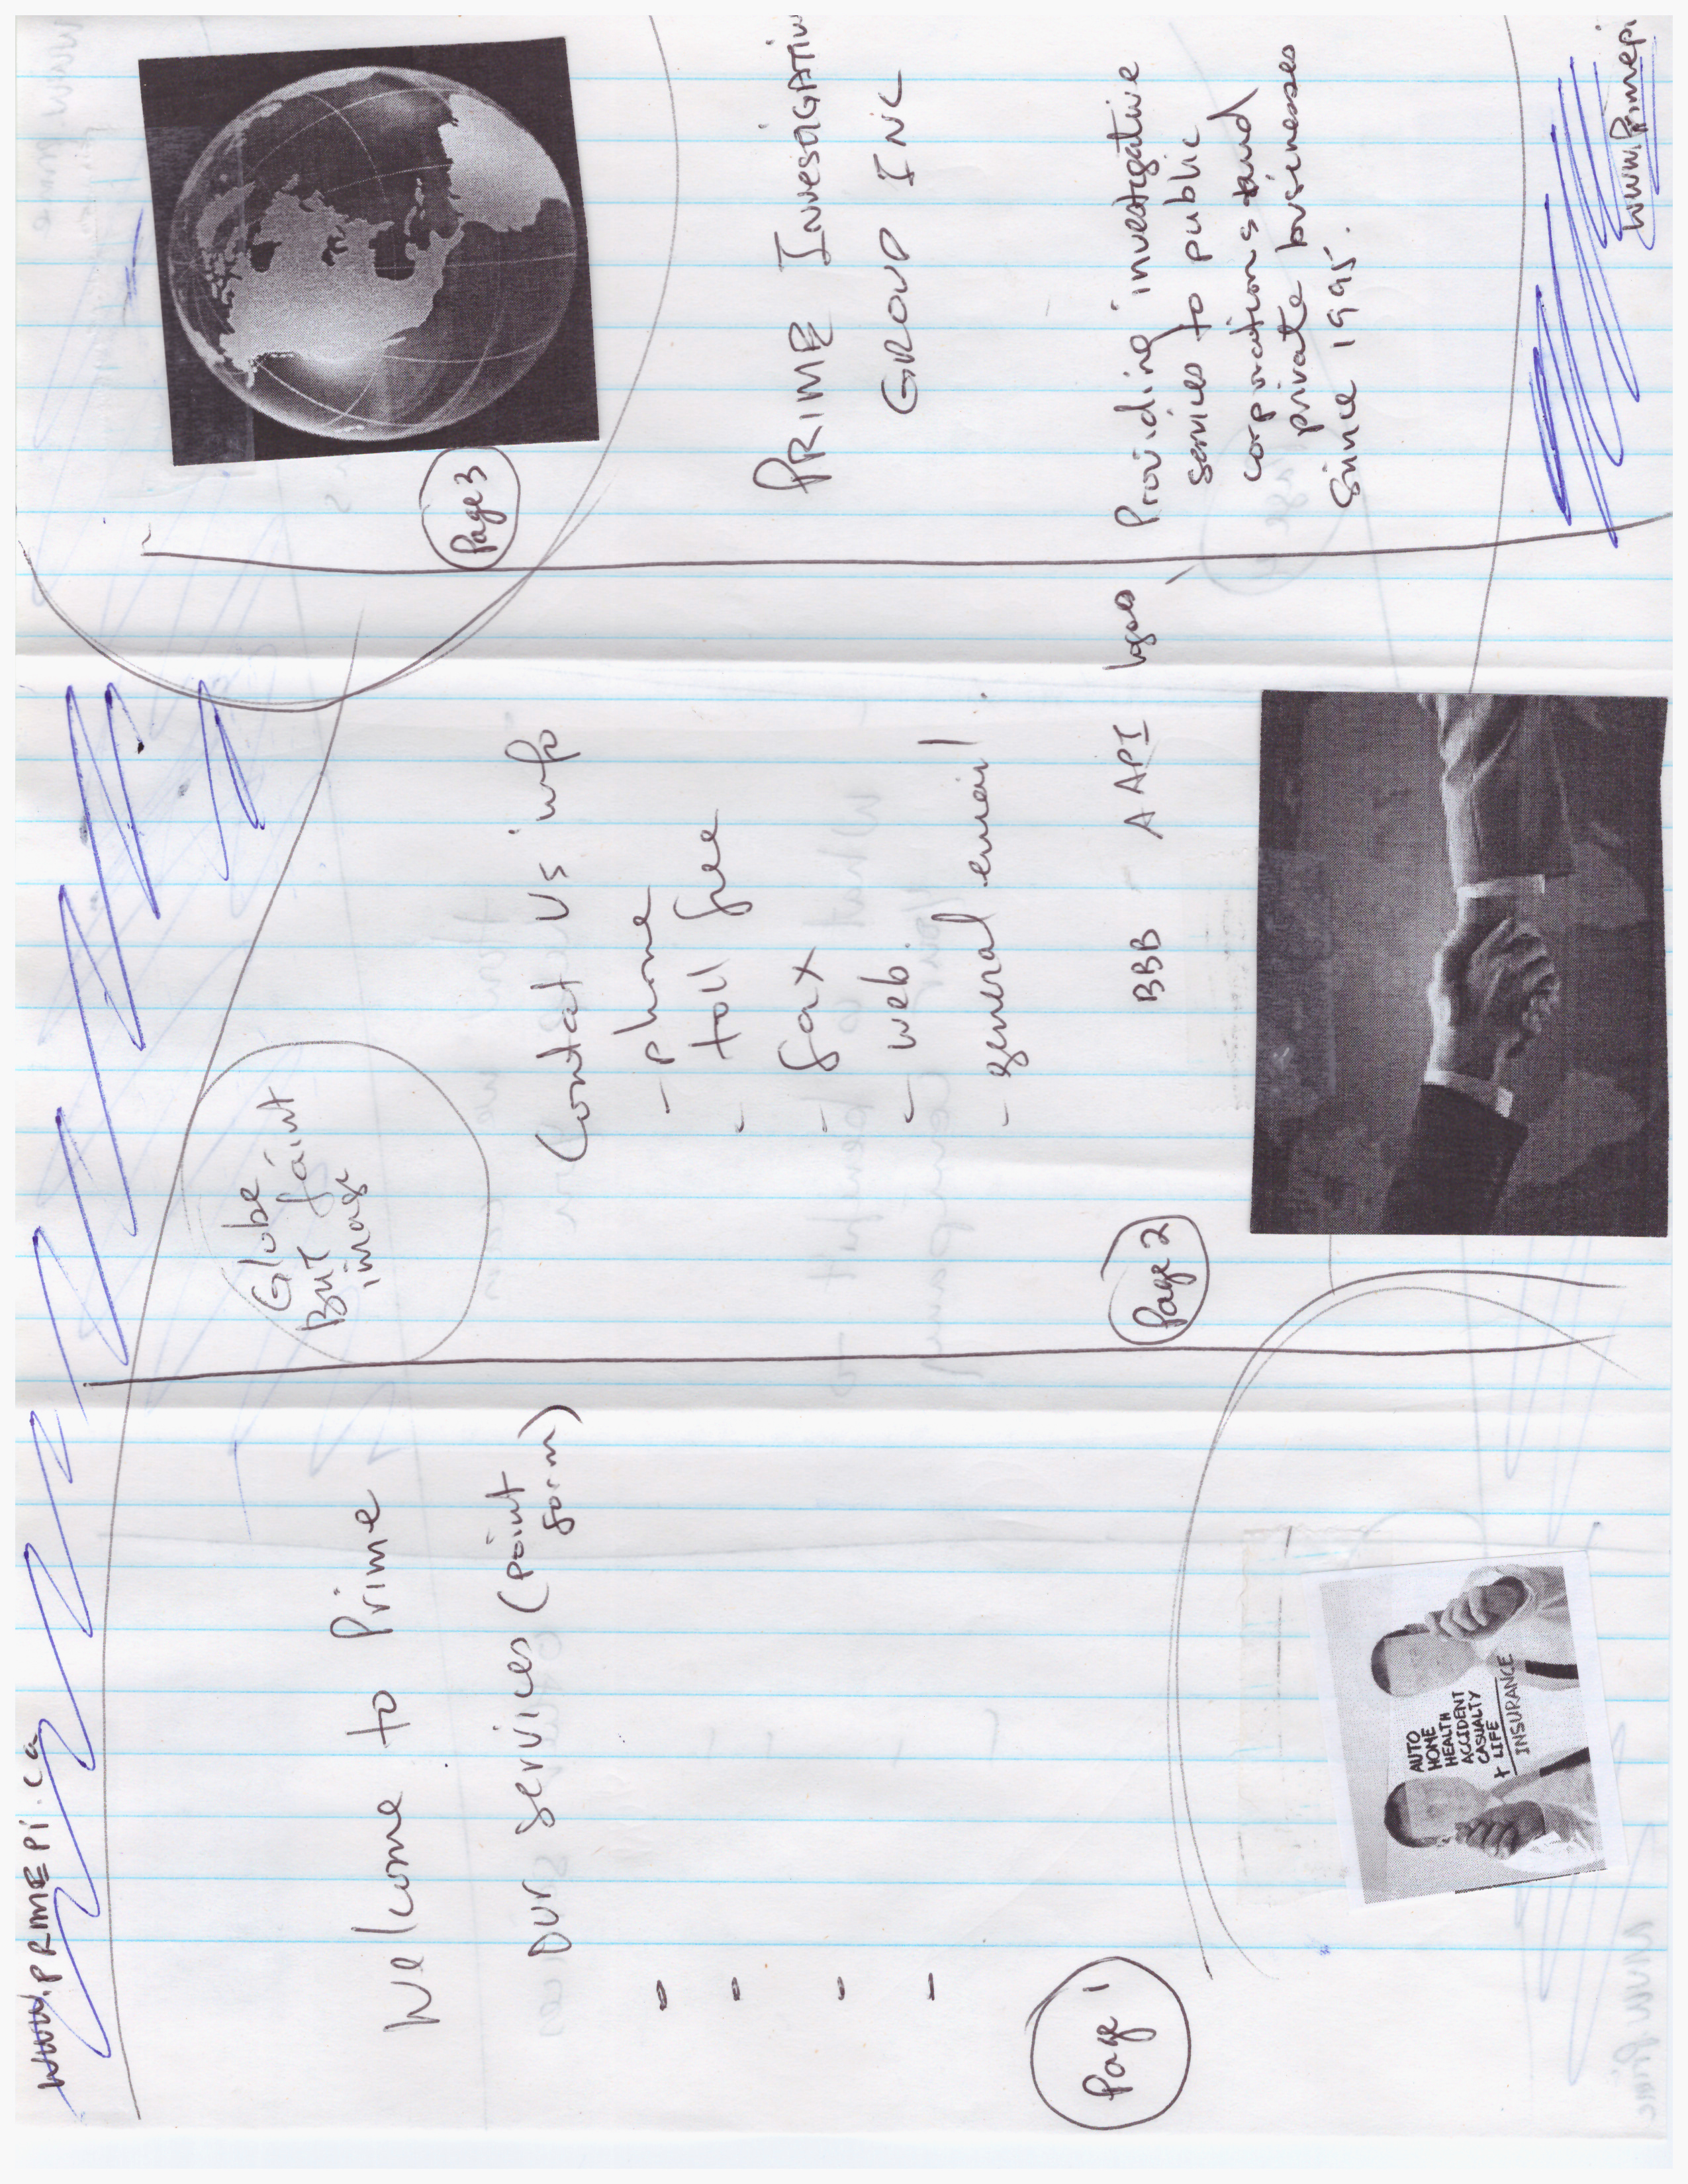 www.PRIMEPi.ca
Welcome to Prime
Our services (point
form)
-
-
-
-
Page 1
AUTO
HOME
HEALTH
ACCIDENT
CASUALTY
+ LIFE
INSURANCE
Globe
But faint
image
Contact Us info
- phone
- toll free
- fax
- web
- general email
BBB - AAPI logos
Page 2
Page 3
PRIME INVESIGATIV
GROUP INC
Providing investigative
services to public
corporations and
private businesses
Since 1995.
www.Primepi